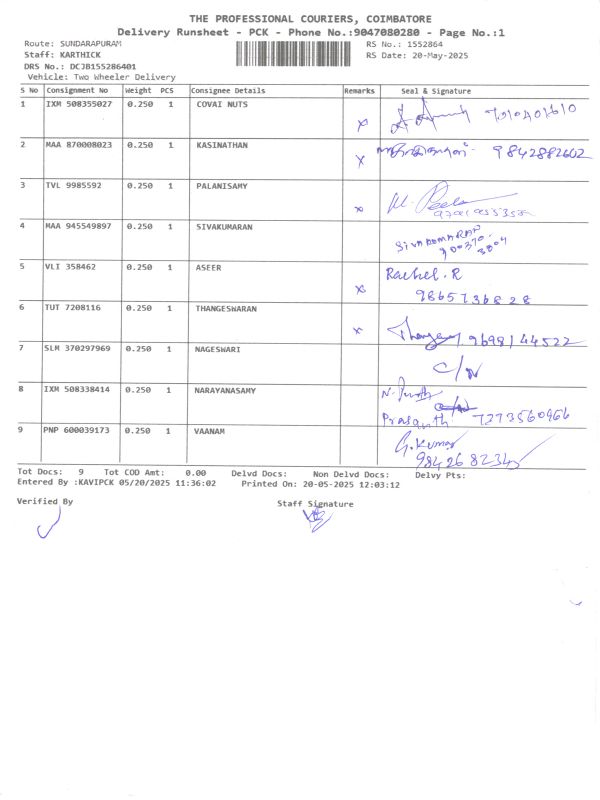 THE PROFESSIONAL COURIERS, COIMBATORE
Delivery Runsheet - PCK - Phone No.:9047080280 - Page No.:1
Route: SUNDARAPURAM RS No.: 1552864
Staff: KARTHICK RS Date: 20-May-2025
DRS No.: DCJB155286401
Vehicle: Two Wheeler Delivery
S No Consignment No Weight PCS Consignee Details Remarks Seal & Signature
1 IXM 508355027 0.250 1 COVAI NUTS x
2 MAA 870008023 0.250 1 KASINATHAN x 9842882602
3 TVL 9985592 0.250 1 PALANISAMY x
4 MAA 945549897 0.250 1 SIVAKUMARAN SIVAKUMARAN
900370
3804
5 VLI 358462 0.250 1 ASEER x Rachel.R
9865736828
6 TUT 7208116 0.250 1 THANGESWARAN x 9698144522
7 SLM 370297969 0.250 1 NAGESWARI C/N
8 IXM 508338414 0.250 1 NARAYANASAMY
Prasanth 7273560966
9 PNP 600039173 0.250 1 VAANAM G.Kumar
9842682345
Tot Docs: 9 Tot COD Amt: 0.00 Delvd Docs: Non Delvd Docs: Delvy Pts:
Entered By :KAVIPCK 05/20/2025 11:36:02 Printed On: 20-05-2025 12:03:12
Verified By Staff Signature